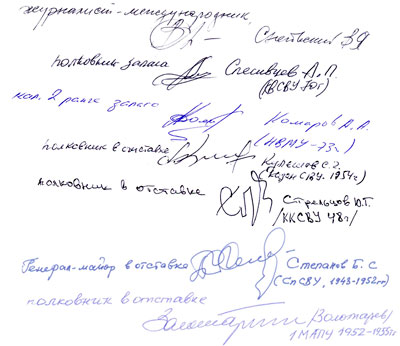 журналист-международник
полковник запаса Спесивцев А.П.
(КВСВУ 70г)
кап. 2 ранга запаса Комаров А.А.
(НВМУ-73г.)
полковник в отставке Кулешов С.Г.
СВУ. 1954г)
полковник в отставке
Стрельцов Ю.Т.
/ККСВУ 48г/
Генерал-майор в отставке Степанов Б.С
(СпСВУ, 1948-1952гг)
полковник в отставке
Золотарев/
1 МАПУ 1952-1955гг